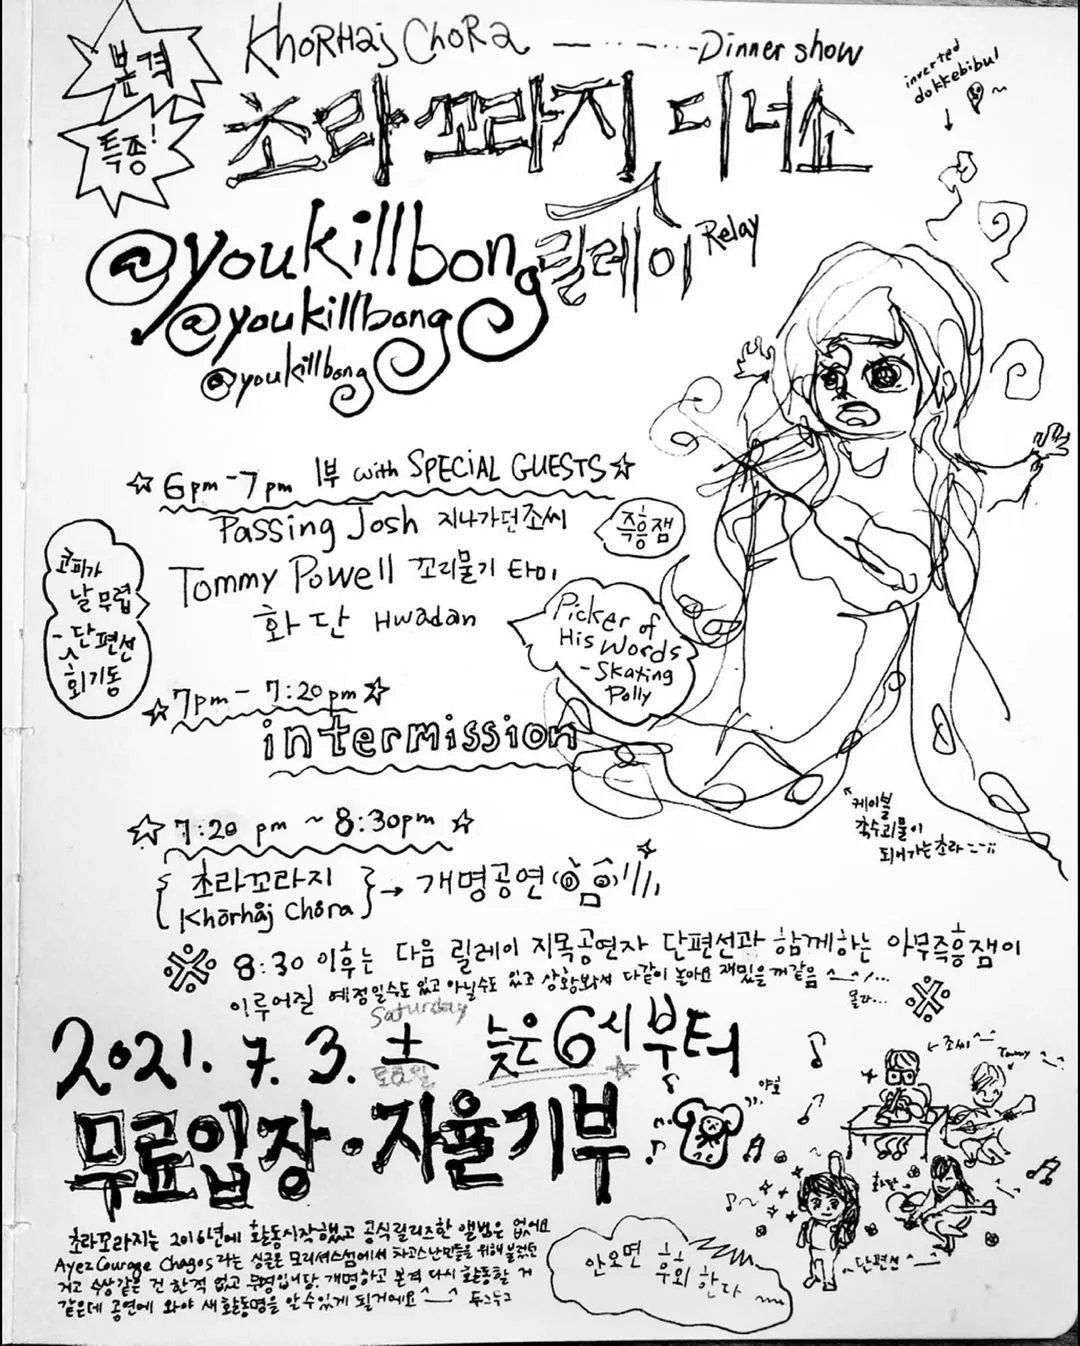 본격
특종!
KhoRHaj ChoRa Dinner show
초라꼬라지 디너쇼
inverted
dokkebibul
@youkillbong 릴레이 Relay
@youkillbong
@youkillbong
6pm-7pm 1부 with SPECiAL GUESTS
Passing Josh 지나가던 조씨
즉흥잼
Tommy Powell 꼬리물기 타미
화단 Hwadan
코피가
날 무렵
-단편선
회기동
Picker of
His Words
-Skating
Polly
7pm - 7:20pm
intermission
7:20 pm ~ 8:30pm
초라꼬라지
Khörhåj Chöra
→ 개명공연
케이블
촉수괴물이
되어가는 초라
※ 8:30 이후는 다음 릴레이 지목공연자 단편선과 함께하는 아무즉흥잼이
이루어질 예정일수도 있고 아닐수도 있고 상황봐서 다같이 놀아요 재밌을꺼같음 ^_^/...
몰라... ※
Saturday
2021. 7. 3. 土 늦은 6시부터
토요일
무료입장·자율기부
야호
조씨
Tommy
화단
단편선
초라꼬라지는 2016년에 활동시작했고 공식릴리즈한 앨범은 없어요
Ayez Courage Chagos라는 싱글은 모리셔스섬에서 차고스난민들을 위해 불렀던
거고 수상같은 건 한적 없고 무명입니당. 개명하고 본격 다시 활동할 거
같은데 공연에 와야 새 활동명을 알수있게 될거에요 ^_^ 두그두그
안오면 후회한다